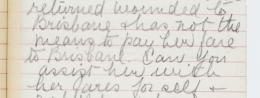 returned wounded to
Brisbane & has not the
means to pay her fare
to Brisbane. Can you
assist her with
her fares for self &